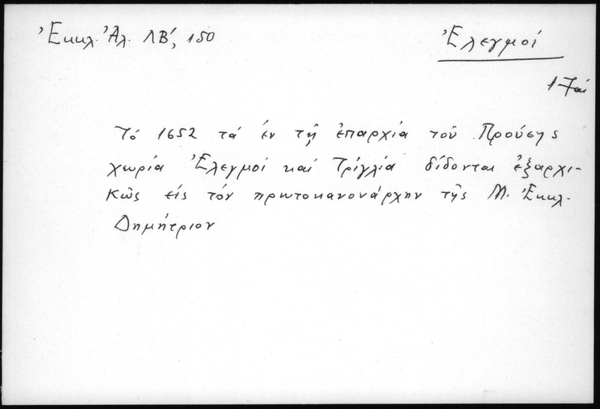 Ἐκκλ. Ἀλ. ΛΒ', 150
Ἐλεγμοί
17αι
Τό 1652 τά ἐν τῇ ἐπαρχίᾳ τοῦ Προύσης
χωρία Ἐλεγμοί καί Τρίγλια δίδονται ἐξαρχι-
κῶς εἰς τόν πρωτοκανονάρχην τῆς Μ. Ἐκκλ.
Δημήτριον